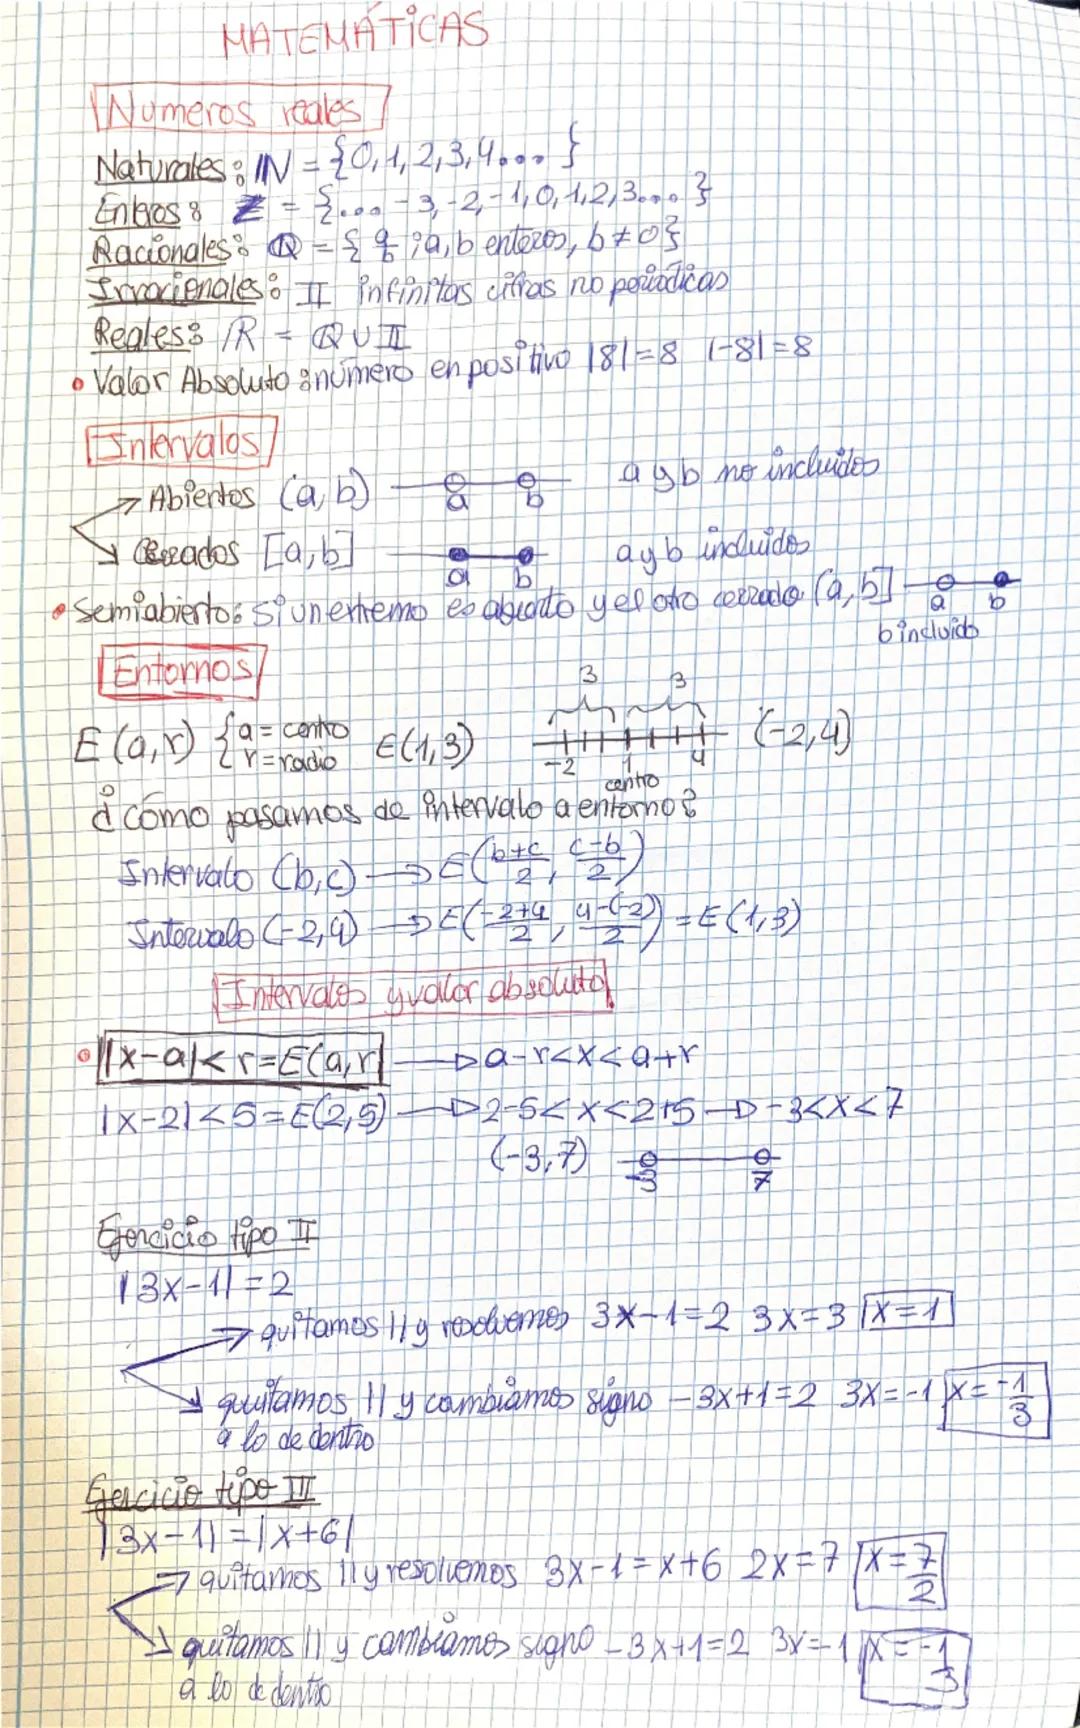 MATEMÁTICAS
Números reales
Naturales: IN = {0,1,2,3,4... }
Enteros: Z = {... -3,-2,-1,0,1,2,3...}
Racionales: Q = { a/b ; a,b enteros, b≠0}
Irracionales: II infinitas cifras no periodicas
Reales: IR = Q U II
• Valor Absoluto: número en positivo |8|=8 |-8|=8
Intervalos
→ Abiertos (a,b) a b a y b no incluidos
→ Cerrados [a,b] a b a y b incluidos
• Semiabierto: si un extremo es abierto y el otro cerrado (a,b] a b
b incluido
Entornos
3 3
E (a,r) { a = centro r = radio E(1,3) -2 1 4 (-2,4)
centro
¿cómo pasamos de intervalo a entorno?
Intervalo (b,c) → E(b+c/2, c-b/2)
Intervalo (-2,4) → E(-2+4/2, 4-(-2)/2) = E(1,3)
Intervalos y valor absoluto
• |x-a|< r=E(a,r) → a-r<x<a+r
|x-2|<5=E(2,5) → 2-5<x<2+5 → -3<x<7
(-3,7) -3 7
Ejercicio tipo II
|3x-1|=2
→ quitamos || y resolvemos 3x-1=2 3x=3 x=1
→ quitamos || y cambiamos signo -3x+1=2 3x=-1 x=-1/3
a lo de dentro
Ejercicio tipo III
|3x-1|=|x+6|
→ quitamos || y resolvemos 3x-1=x+6 2x=7 x=7/2
→ quitamos || y cambiamos signo -3x+1=2 3x=-1 x=-1/3
a lo de dentro